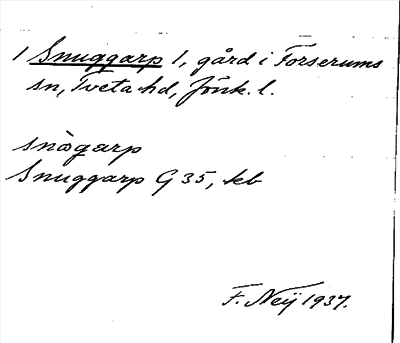 1 Snuggarp 1, gård i Forserums
sn, Tveta hd, Jönk. l.
snògarp
Snuggarp G 35, kb
F. Neij 1937.